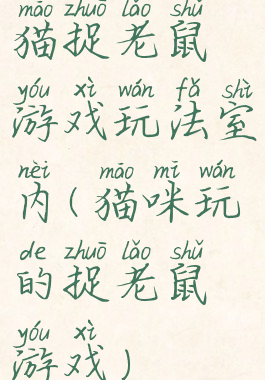 māo zhuō lǎo shǔ
猫捉老鼠
yóu xì wán fǎ shì
游戏玩法室
nèi māo mī wán
内（猫咪玩
de zhuō lǎo shǔ
的捉老鼠
yóu xì
游戏）